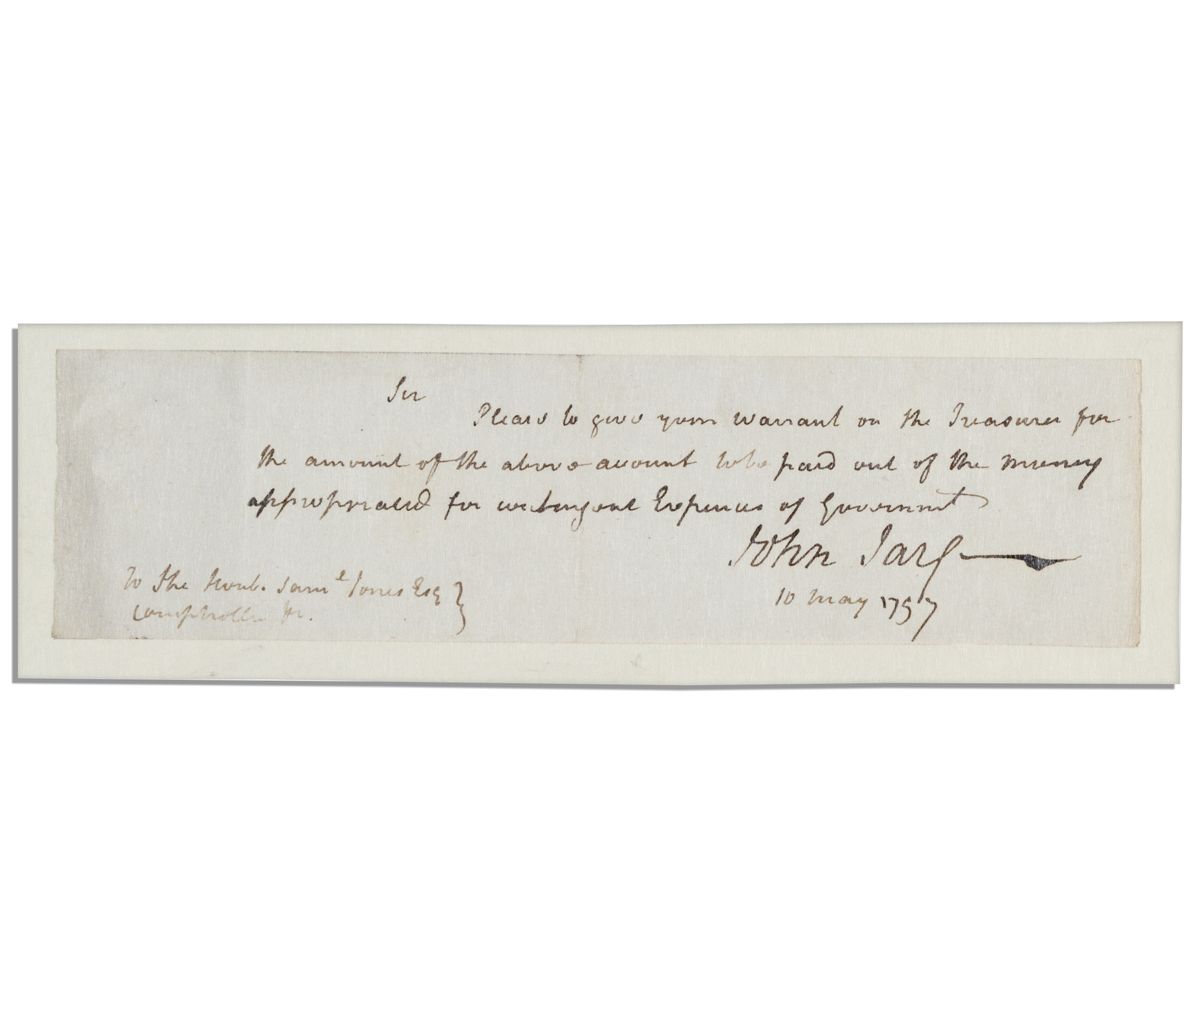 Sir
Please to give your warrant on the Treasurer for
the amount of the above account to be paid out of the money
appropriated for contingent Expences of Government
John Jay
10 May 1797
To The Honb. Sam.l Jones Esq
Comptroller &c.